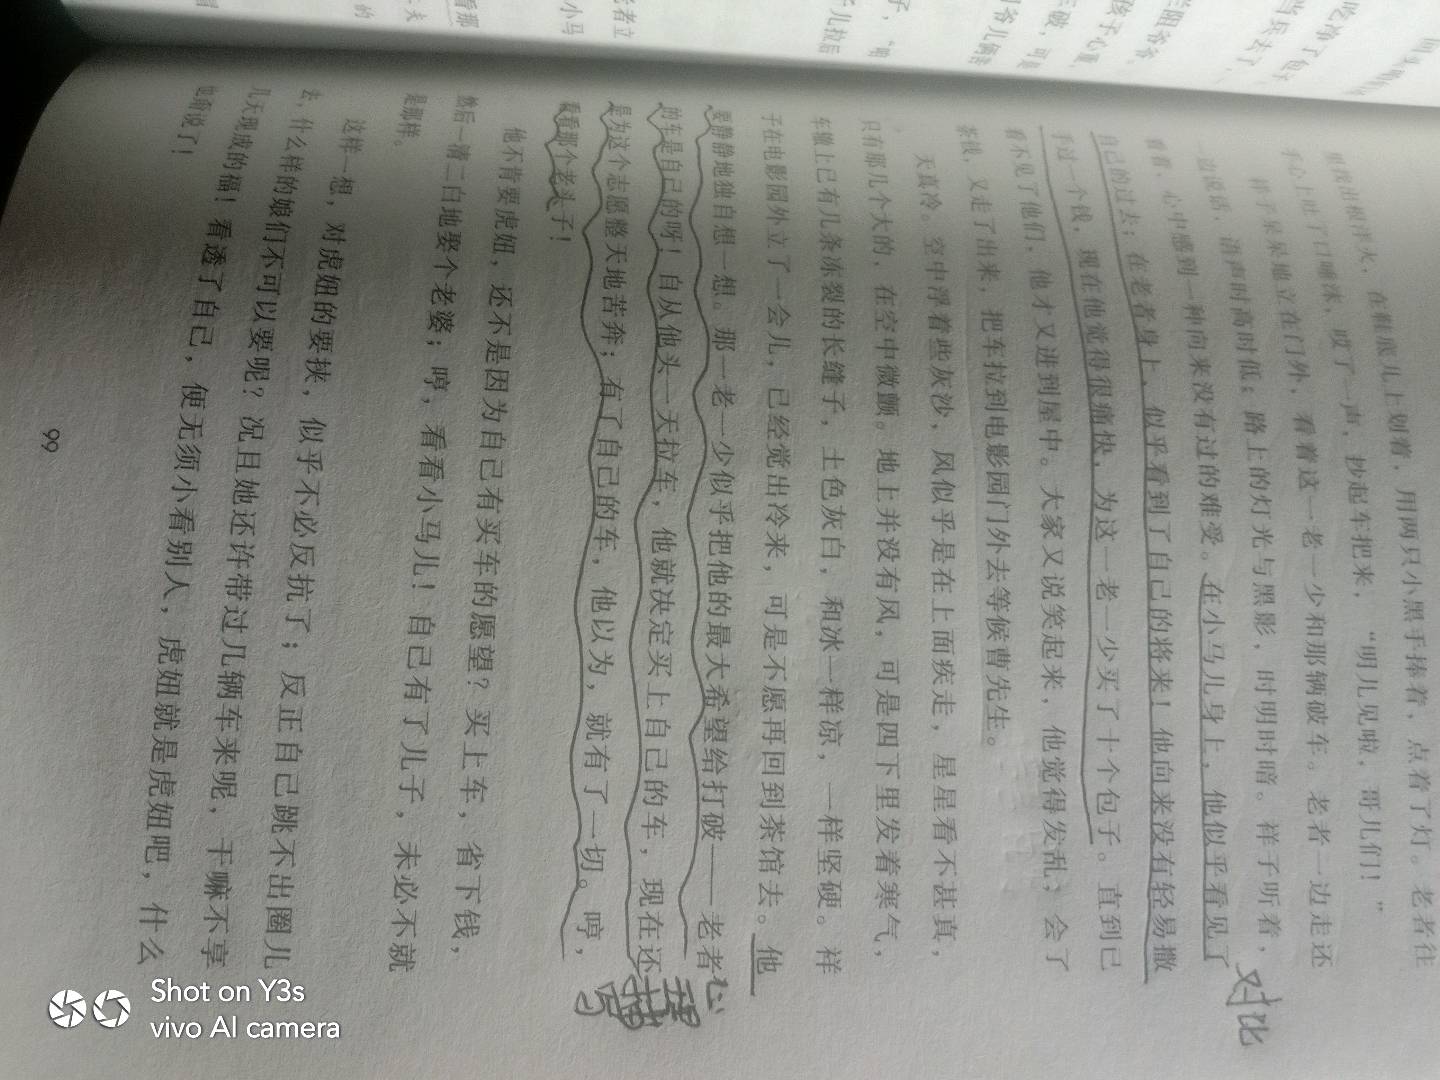 里找出根洋火，在鞋底儿上划着，用两只小黑手捧着，点着了灯。老者往
手心上吐了口唾沫，哎了一声，抄起车把来，“明儿见啦，哥儿们！”
祥子呆呆地立在门外，看着这一老一少和那辆破车。老者一边走还
一边说话，语声时高时低；路上的灯光与黑影，时明时暗。祥子听着，
看着，心中感到一种向来没有过的难受。在小马儿身上，他似乎看见了
自己的过去；在老者身上，似乎看到了自己的将来！他向来没有轻易撒
手过一个钱，现在他觉得很痛快，为这一老一少买了十个包子。直到已
看不见了他们，他才又进到屋中。大家又说笑起来，他觉得发乱，会了
茶钱，又走了出来，把车拉到电影园门外去等候曹先生。
天真冷。空中浮着些灰沙，风似乎是在上面疾走，星星看不甚真，
只有那几个大的，在空中微颤。地上并没有风，可是四下里发着寒气，
车辙上已有几条冻裂的长缝子，土色灰白，和冰一样凉，一样坚硬。祥
子在电影园外立了一会儿，已经觉出冷来，可是不愿再回到茶馆去。他
要静静地独自想一想。那一老一少似乎把他的最大希望给打破——老者
的车是自己的呀！自从他头一天拉车，他就决定买上自己的车，现在还
是为这个志愿整天地苦奔；有了自己的车，他以为，就有了一切。哼，
看看那个老头子！
他不肯要虎妞，还不是因为自己有买车的愿望？买上车，省下钱，
然后一清二白地娶个老婆；哼，看看小马儿！自己有了儿子，未必不就
是那样。
这样一想，对虎妞的要挟，似乎不必反抗了；反正自己跳不出圈儿
去，什么样的娘们不可以要呢？况且她还许带过几辆车来呢，干嘛不享
几天现成的福！看透了自己，便无须小看别人，虎妞就是虎妞吧，什么
也甭说了！
99
对比
心理描写
Shot on Y3s
vivo AI camera